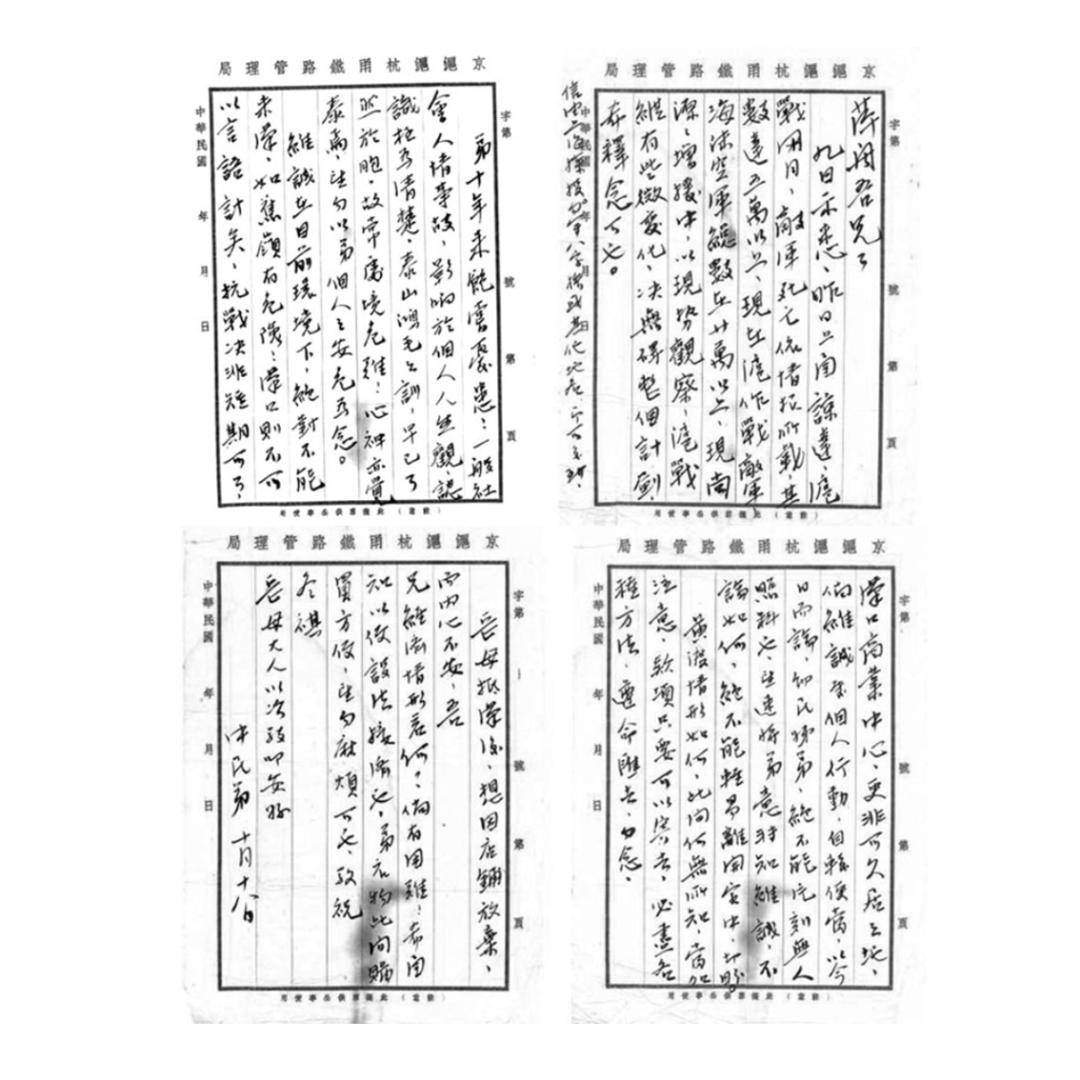 京滬滬杭甬鐵路管理局
字第 號 第 頁
吾兄
九日示悉、昨日上函諒達、滬
戰開月、敵軍死亡依情報所載、其
數達五萬以上、現在滬作戰敵軍
海陸空軍總數在廿萬以上、現尚
源源增援中、以現勢觀察、滬戰
縱有些微變化、决無碍整個計劃、
希釋念可也。
中華民國 年 月 日
(註意)此備票供岳學便用
京滬滬杭甬鐵路管理局
字第 號 第 頁
弟十年來飽嘗憂患、一般社
會人情事故、影响於個人人生觀、認
識極為清楚、泰山鴻毛之訓、早已了
然於胸、故常處境危難、心神亦覺
泰焉、望勿以弟個人之安危為念。
維誠在目前環境下、絕對不能
來漢、如蕉嶺有危險、漢口則不可
以言語計矣、抗戰决非短期可了、
中華民國 年 月 日
京滬滬杭甬鐵路管理局
字第 號 第 頁
漢口商業中心、更非可久居之地、
倘維誠來個人行動、自較便當、以今
日而論、幼民姊弟、絕不能片刻無人
照料也、望速將弟意詳知維誠、不
論如何、絕不能輕易離開家中、切盼
黃渡情形如何、此间何無所知、當加
注意、款項只要可以寄去、必盡各
種方法、遵命匯去、勿念、
中華民國 年 月 日
京滬滬杭甬鐵路管理局
字第 號 第 頁
岳母抵漢後、想因店鋪放棄、
而内心不安、吾
兄經濟情形若何？倘有困難、希函
知以便設法接濟也、弟衣物此间購
買方便、望勿麻煩可也、致祝
冬祺
岳母大人以次致叩安好
中民弟 十月十八日
中華民國 年 月 日